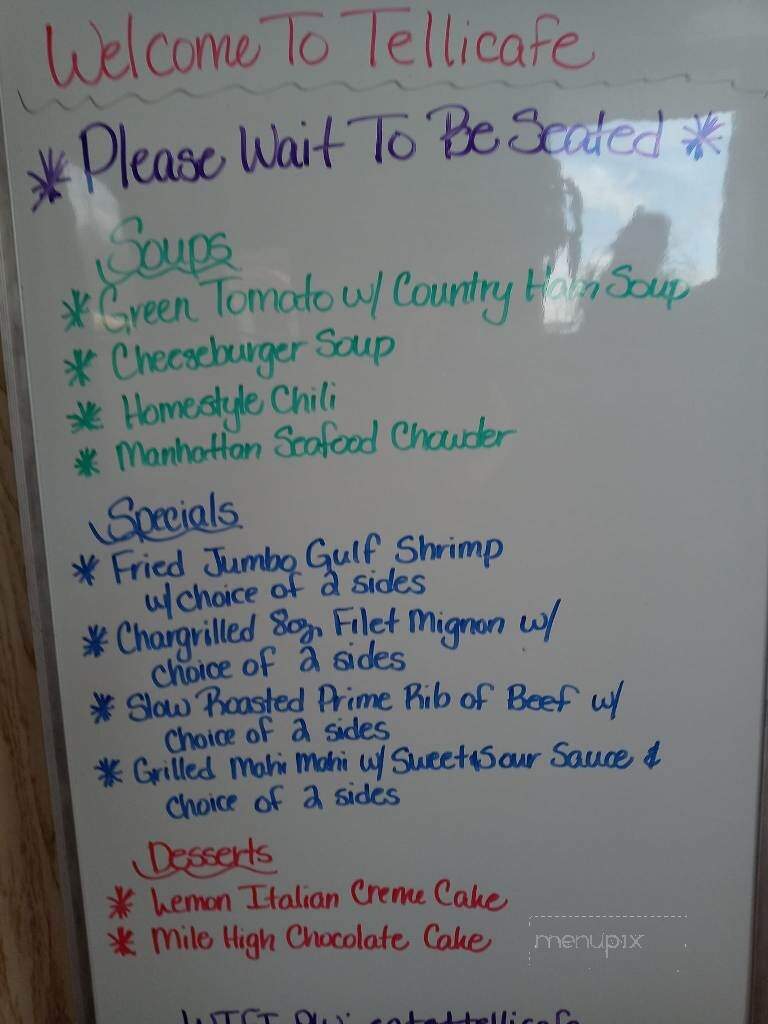 Welcome To Tellicafe
* Please Wait To Be Seated *
Soups
* Green Tomato w/ Country Ham Soup
* Cheeseburger Soup
* Homestyle Chili
* Manhattan Seafood Chowder
Specials
* Fried Jumbo Gulf Shrimp
w/choice of 2 sides
* Chargrilled 8oz. Filet Mignon w/
choice of 2 sides
* Slow Roasted Prime Rib of Beef w/
choice of 2 sides
* Grilled Mahi Mahi w/ Sweet & Sour Sauce &
choice of 2 sides
Desserts
* Lemon Italian Creme Cake
* Mile High Chocolate Cake
menupix